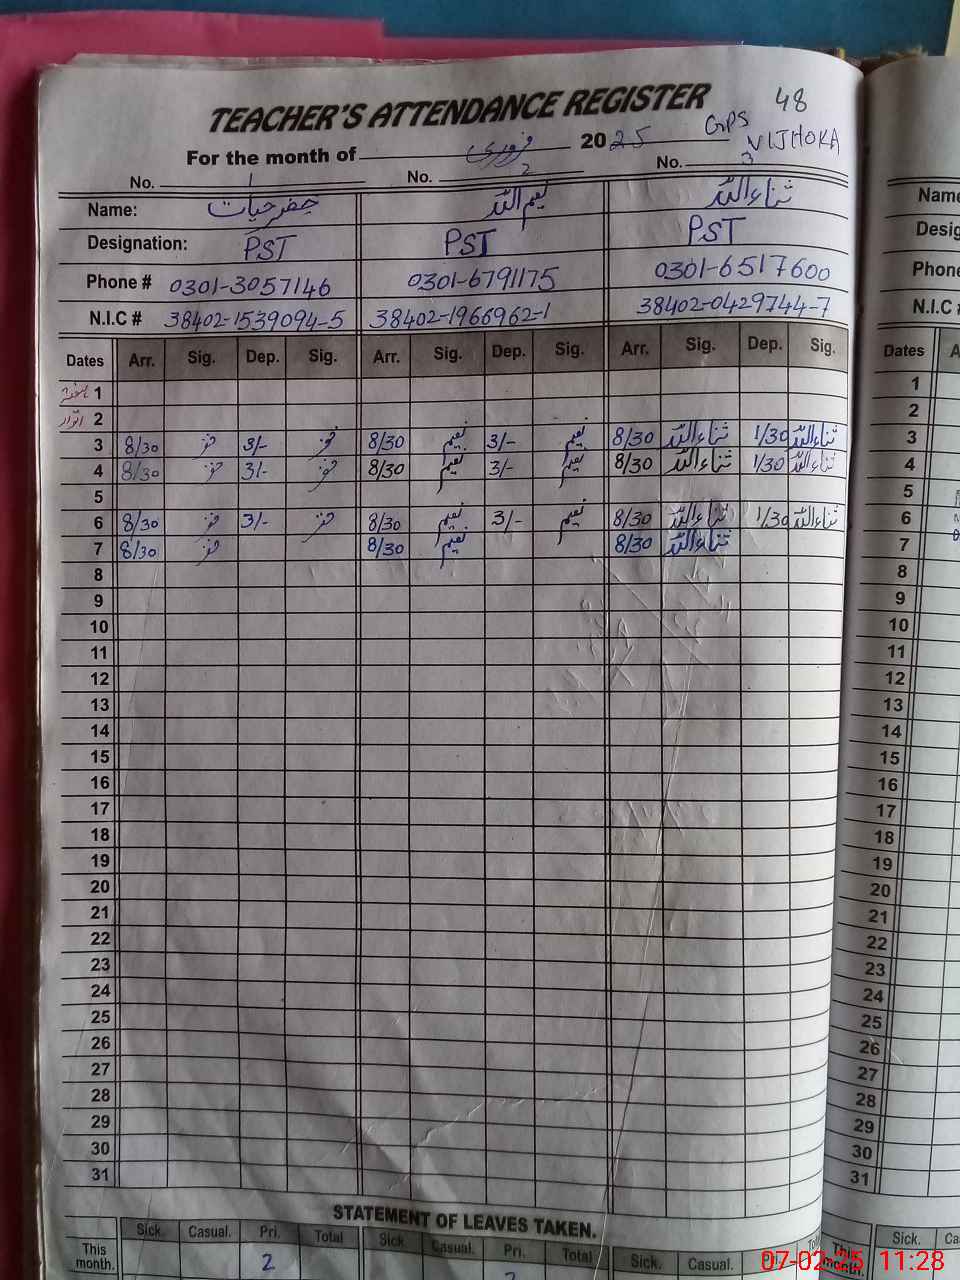 48
TEACHER'S ATTENDANCE REGISTER
GPS VIJHOKA
For the month of فروری 2025
No. 1 No. 2 No. 3
Name: خضر حیات نعیم اللہ ثناء اللہ
Designation: PST PST PST
Phone # 0301-3057146 0301-6791175 0301-6517600
N.I.C # 38402-1539094-5 38402-1966962-1 38402-0429744-7
Dates Arr. Sig. Dep. Sig. Arr. Sig. Dep. Sig. Arr. Sig. Dep. Sig.
1
اتوار 2
3 8/30 3/- 8/30 نعیم 3/- نعیم 8/30 ثناء اللہ 1/30 ثناء اللہ
4 8/30 3/- 8/30 نعیم 3/- نعیم 8/30 ثناء اللہ 1/30 ثناء اللہ
5
6 8/30 3/- 8/30 نعیم 3/- نعیم 8/30 ثناء اللہ 1/30 ثناء اللہ
7 8/30 8/30 نعیم 8/30 ثناء اللہ
8
9
10
11
12
13
14
15
16
17
18
19
20
21
22
23
24
25
26
27
28
29
30
31
STATEMENT OF LEAVES TAKEN.
Sick. Casual. Pri. Total Sick. Casual. Pri. Total
This month. 2
Name
Desig
Phone
N.I.C
Dates A
1
2
3
4
5
6
7
8
9
10
11
12
13
14
15
16
17
18
19
20
21
22
23
24
25
26
27
28
29
30
31
Sick. Ca
This month.
07-02-25 11:28